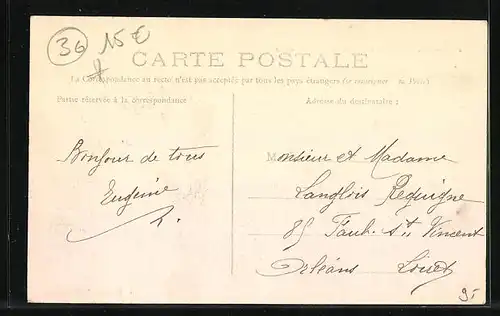 36 15€
CARTE POSTALE
La Correspondance au recto n'est pas acceptée par tous les pays étrangers (se renseigner à la Poste)
Partie réservée à la correspondance
Adresse du destinataire :
Bonjour de tous
Eugénie
L.
Monsieur et Madame
Langlois Requigne
85 Faub. St Vincent
Orléans Loiret
9.-